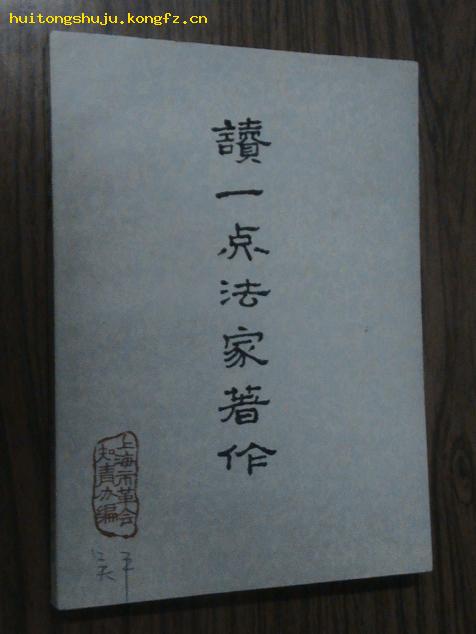 huitongshuju.kongfz.cn
讀一点法家著作
上海市革会
知青办编